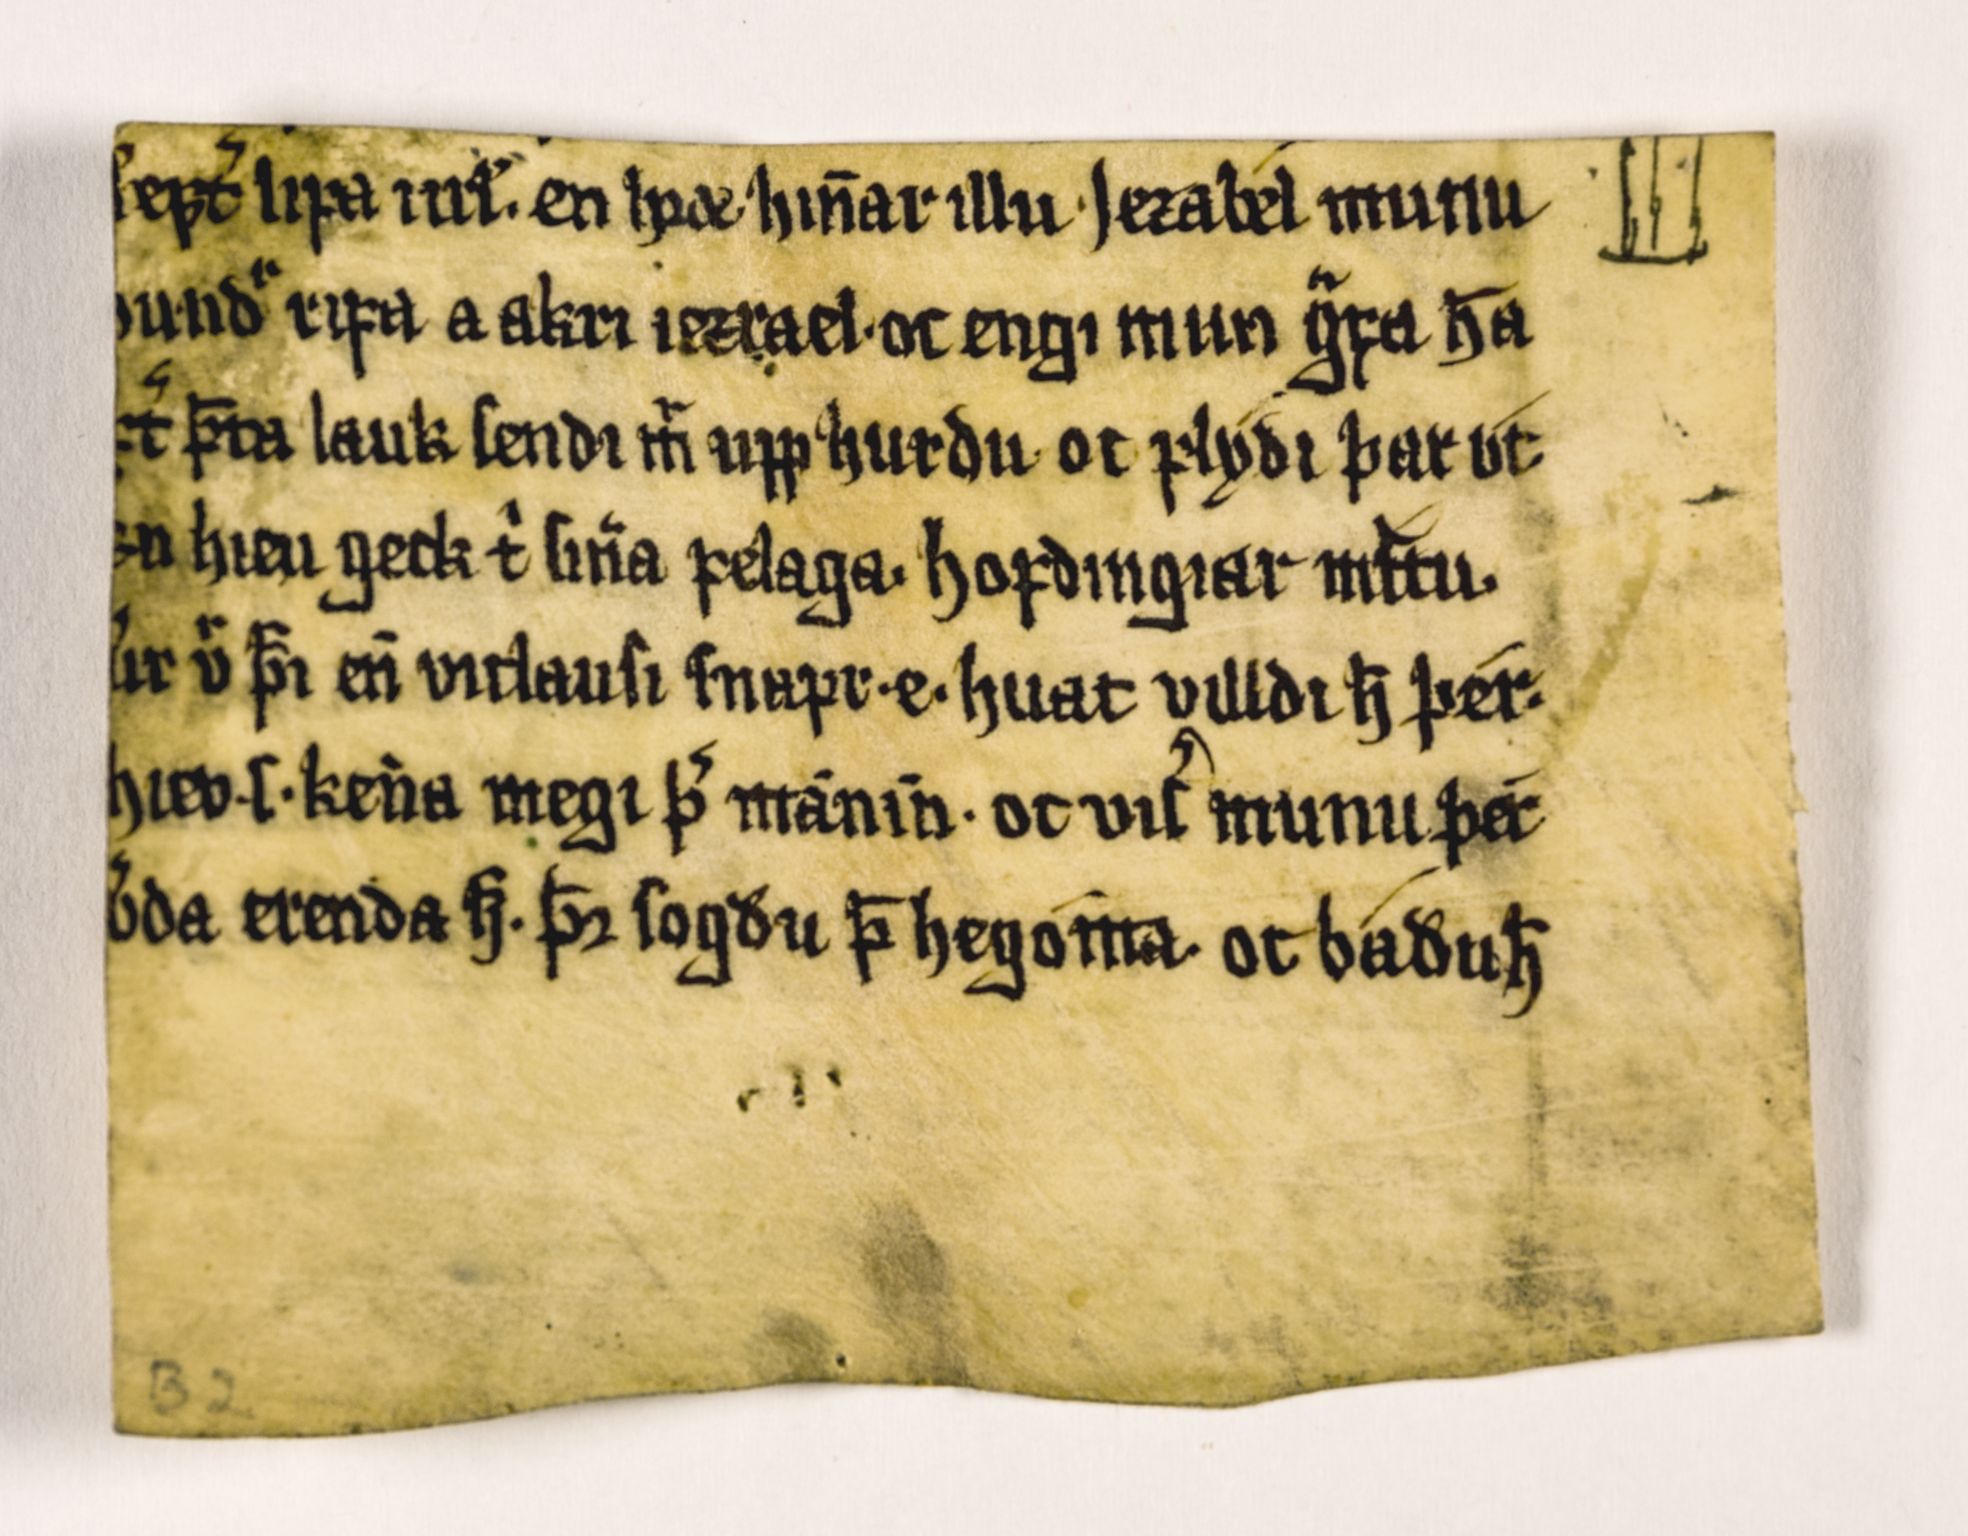 sept͛ lifa mĩ. en hræ hiñar illu Jezabel munu
hundͬ rifa a akri iezrael· oc engi mun gͬfa ħa
ept͛ þ̄ta lauk sendi m̃ upp hurdu oc flydi þar ut
en hieu geck t̉ siña felaga. hofdingiar mltu.
ꝩ̃ þ̄i eñ vitlausi snapr·e· huat villdi ħ þer·
hiev·s· keña megi þ͛ mānin̄· oc vis͛ munu þer
erenda ħ· þ̄ꝛ sogdu þ̄ hegoma· oc badu ħ
B 2